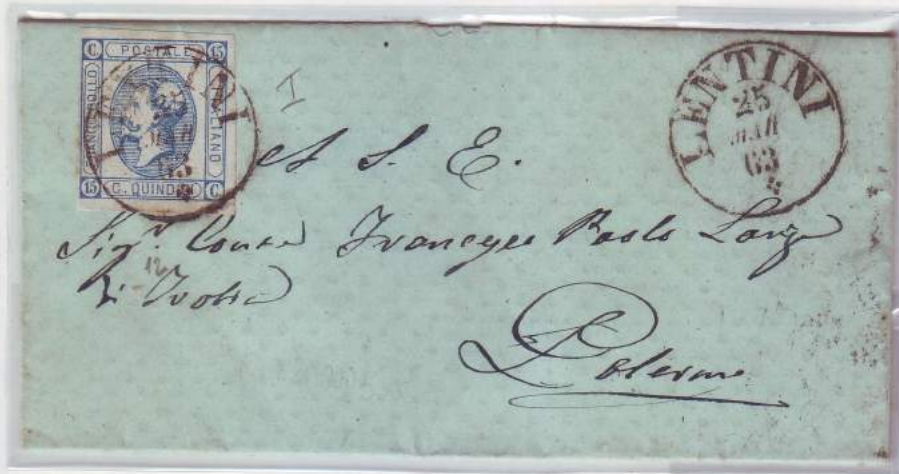 C POSTALE 15
FRANCO BOLLO
ITALIANO
15 C. QUINDICI C
LENTINI
25
MAR
63
I
A S. E.
Sigr. Conte Francesco Paolo Lanza
12
Di
Palermo